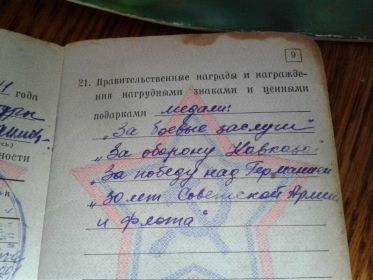 9
21. Правительственные награды и награжде-
ния нагрудными знаками и ценными
подарками медали:
„За боевые заслуги"
„За оборону Кавказа"
„За победу над Германией
„30 лет Советской Армии
и флота"
года
ности